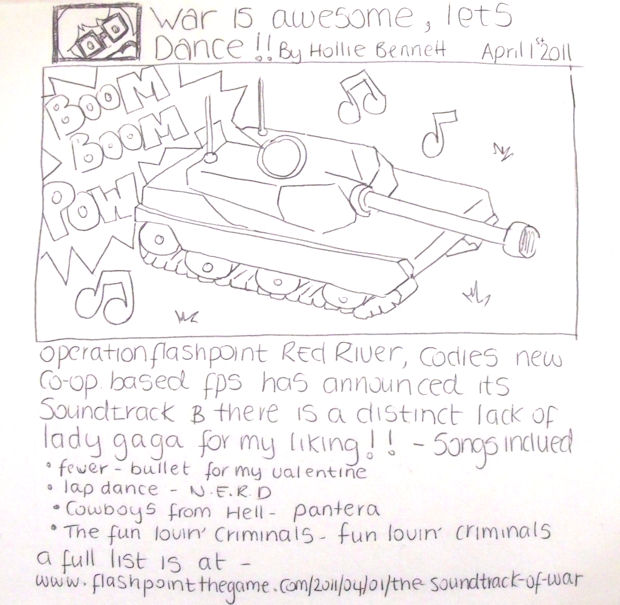 War is awesome, lets
Dance!! By Hollie Bennett April 1st 2011
BOOM
BOOM
POW
operation flashpoint Red River, Codies new
Co-op based fps has announced its
Soundtrack & there is a distinct lack of
lady gaga for my liking!! - Songs inclued
• fever - bullet for my valentine
• lap dance - N.E.R.D
• Cowboys from Hell - pantera
• The fun lovin' Criminals - fun lovin' criminals
a full list is at -
www.flashpointthegame.com/2011/04/01/the-soundtrack-of-war